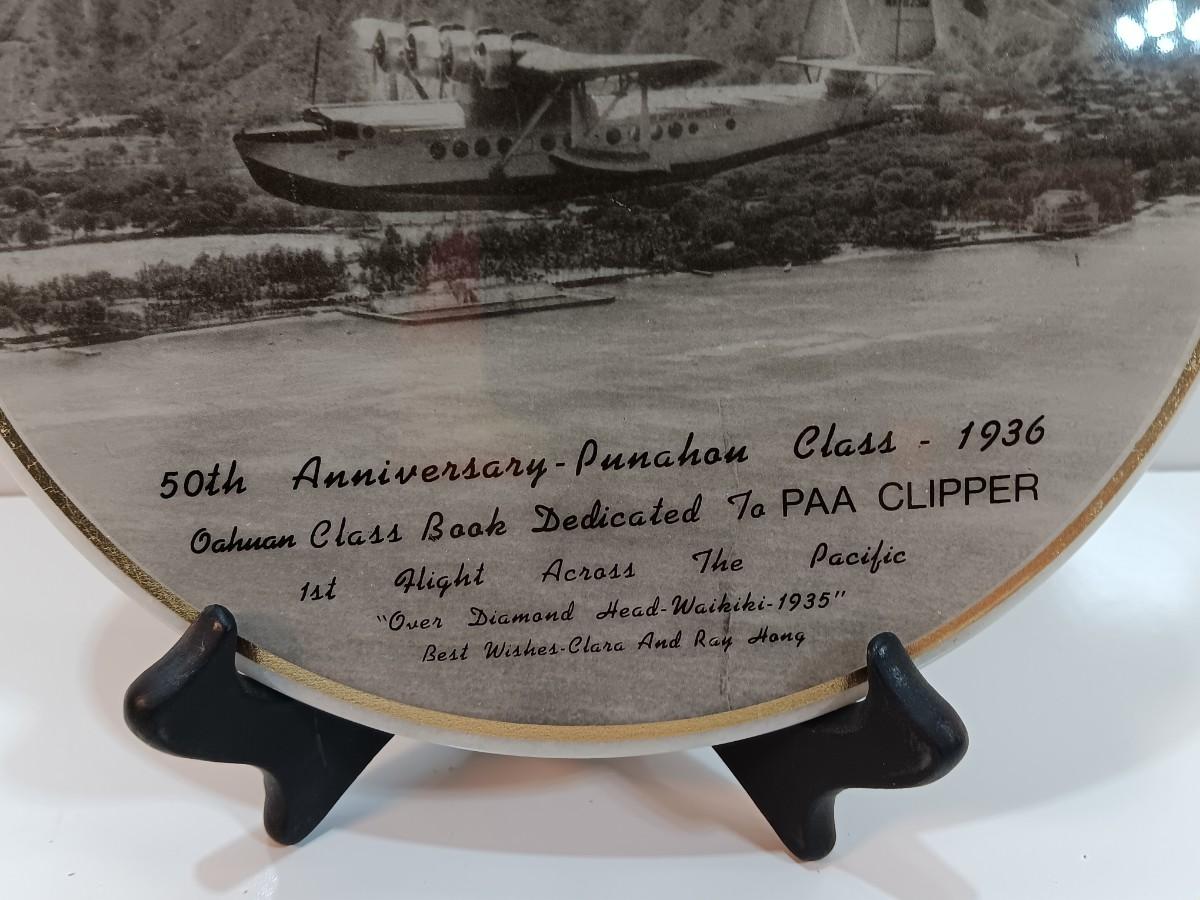 50th Anniversary-Punahou Class - 1936
Oahuan Class Book Dedicated To PAA CLIPPER
1st Flight Across The Pacific
"Over Diamond Head-Waikiki-1935"
Best Wishes-Clara And Ray Hong